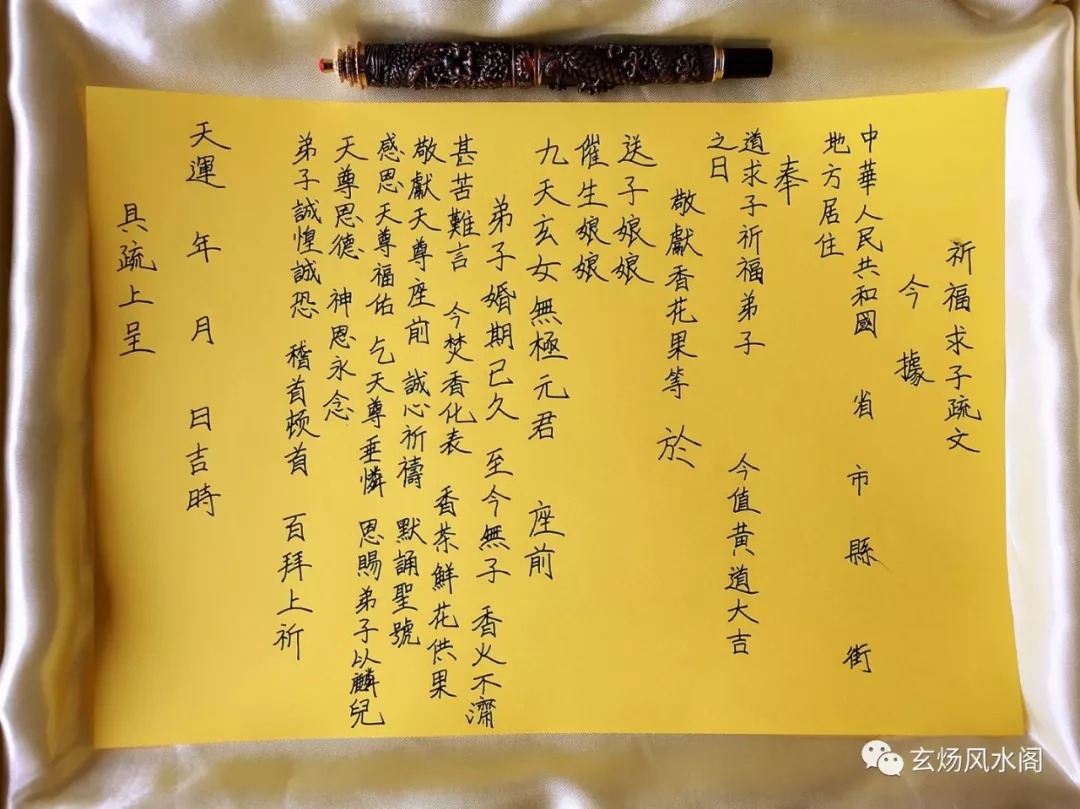 祈福求子疏文
今據
中華人民共和國 省 市 縣 街
地方居住
奉
道求子祈福弟子 今值黃道大吉
之日
敬獻香花果等 於
送子娘娘
催生娘娘
九天玄女無極元君 座前
弟子婚期已久 至今無子 香火不濟
甚苦難言 今焚香化表 香茶鮮花供果
敬獻天尊座前 誠心祈禱 默誦聖號
感恩天尊福佑 乞天尊垂憐 恩賜弟子以麟兒
天尊恩德 神恩永念
弟子誠惶誠恐 稽首頓首 百拜上祈
天運 年 月 日吉時
具疏上呈
玄炀风水阁